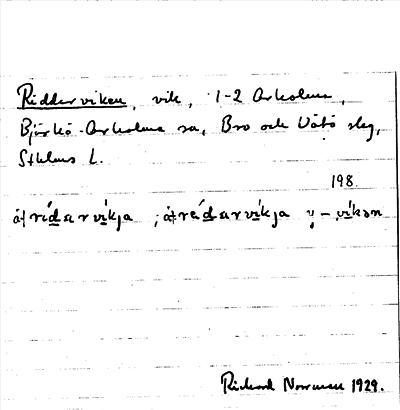 Riddarviken, vik, 1-2 Arholma,
Björkö-Arholma sn, Bro och Vätö slg,
Sthlms L.
198.
å̀t rídarvíkja ; åt rédarvíkja y – víkən
Rickard Norrman 1929.